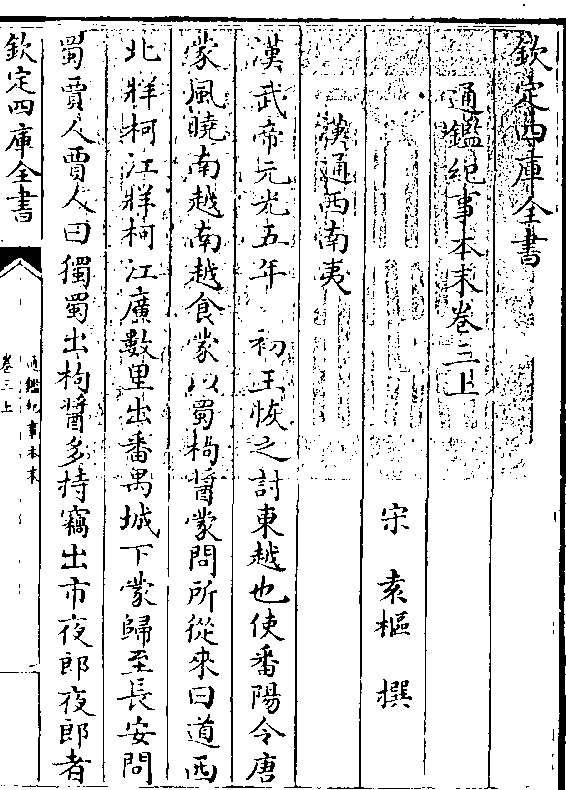 欽定四庫全書
通鑑紀事本末卷三上
宋 袁樞 撰
漢通西南夷
漢武帝元光五年 初王恢之討東越也使番陽令唐
蒙風曉南越南越食蒙以蜀枸醬蒙問所從來曰道西
北牂柯江牂柯江廣數里出番禺城下蒙歸至長安問
蜀賈人賈人曰獨蜀出枸醬多持竊出市夜郎夜郎者
欽定四庫全書
通鑑紀事本末
卷三上